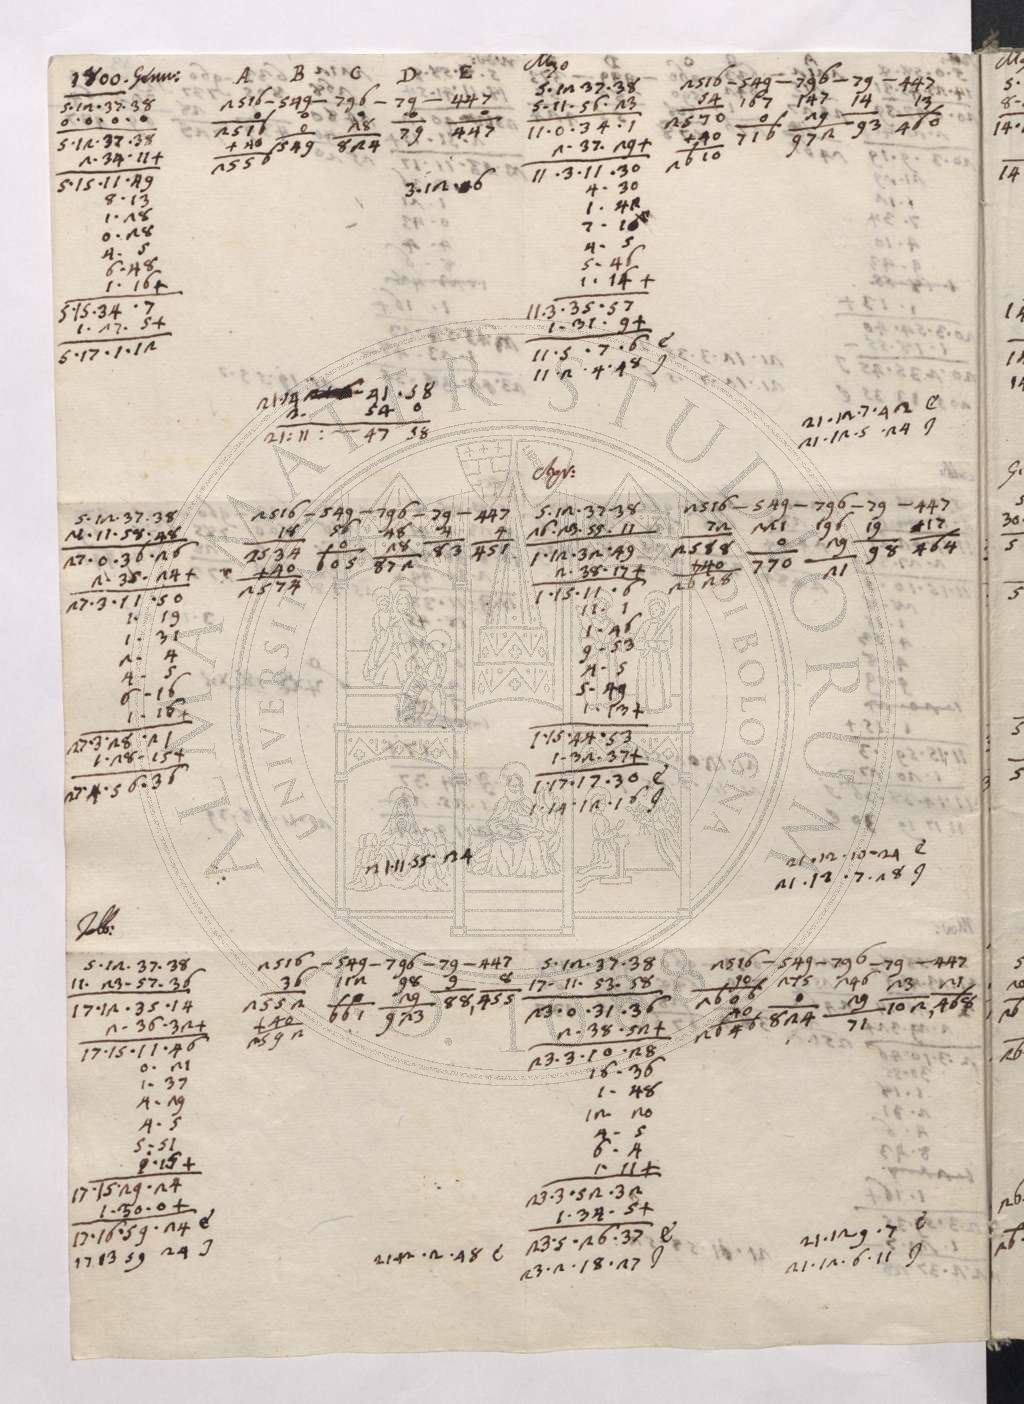 1800. Genn:
A B C D E
5.12.37.38
0.0.0.0
5.12.37.38
2.34.11+
5.15.11.49
8.13
1.28
0.28
4.5
6.48
1.16+
5.15.34.7
1.27.5+
5.17.1.12
2516-549-796-79-447
0 0 28 0 0
2516 549 824 79 447
+40
2556
3.12.46
41.58
2. 54 0
21:11:-47 58
Mzo
5.12.37.38
5.11.56.23
11.0.34.1
2.37.29+
11.3.11.30
4.30
1.42
7.16
4.5
5.46
1.14+
11.3.35.57
1.31.9+
11.5.7.6
11.2.4.48
2516-549-796-79-447
54 167 147 14 13
2570 0 29 93 460
+40 716 972
2610
21.12.7.42
21.12.5.24
5.12.37.38
21.11.58.48
27.0.36.26
2.35.24+
27.3.11.50
1.19
1.31
2.4
4.5
6.16
1.16+
27.3.28.21
1.28.15+
27.4.56.36
2516-549-796-79-447
18 56 48 4 4
2534 +0 28 83 451
+40 605 872
2574
21.11.55.24
Apr:
5.12.37.38
26.23.55.11
1.12.32.49
2.38.17+
1.15.11.6
11.1
1.46
9.53
4.5
5.49
1.13+
1.15.44.53
1.32.37+
1.17.17.30
1.14.12.16
2516-549-796-79-447
72 221 196 19 17
2588 0 29 98 464
+40 770 21
2628
21.12.10.24
21.12.7.28
Febb:
5.12.37.38
11.23.57.36
17.12.35.14
2.36.32+
17.15.11.46
0.21
1.37
4.29
4.5
5.51
15+
17.15.29.24
1.30.0+
17.16.59.24
17 13 59 24
2516-549-796-79-447
36 112 98 9 8
2552 +0 29 88, 455
+40 661 923
2592
2.2.48
5.12.37.38
17.11.53.58
23.0.31.36
2.38.52+
23.3.10.28
16.36
1.48
12 20
4.5
6.4
1.11+
23.3.52.32
1.34.5+
23.5.26.37
23.2.18.27
2516-549-796-79-447
90 275 246 23 21
2606 0 29 102, 468
40 824 71
2646
21.12 9.7
21.12.6.11